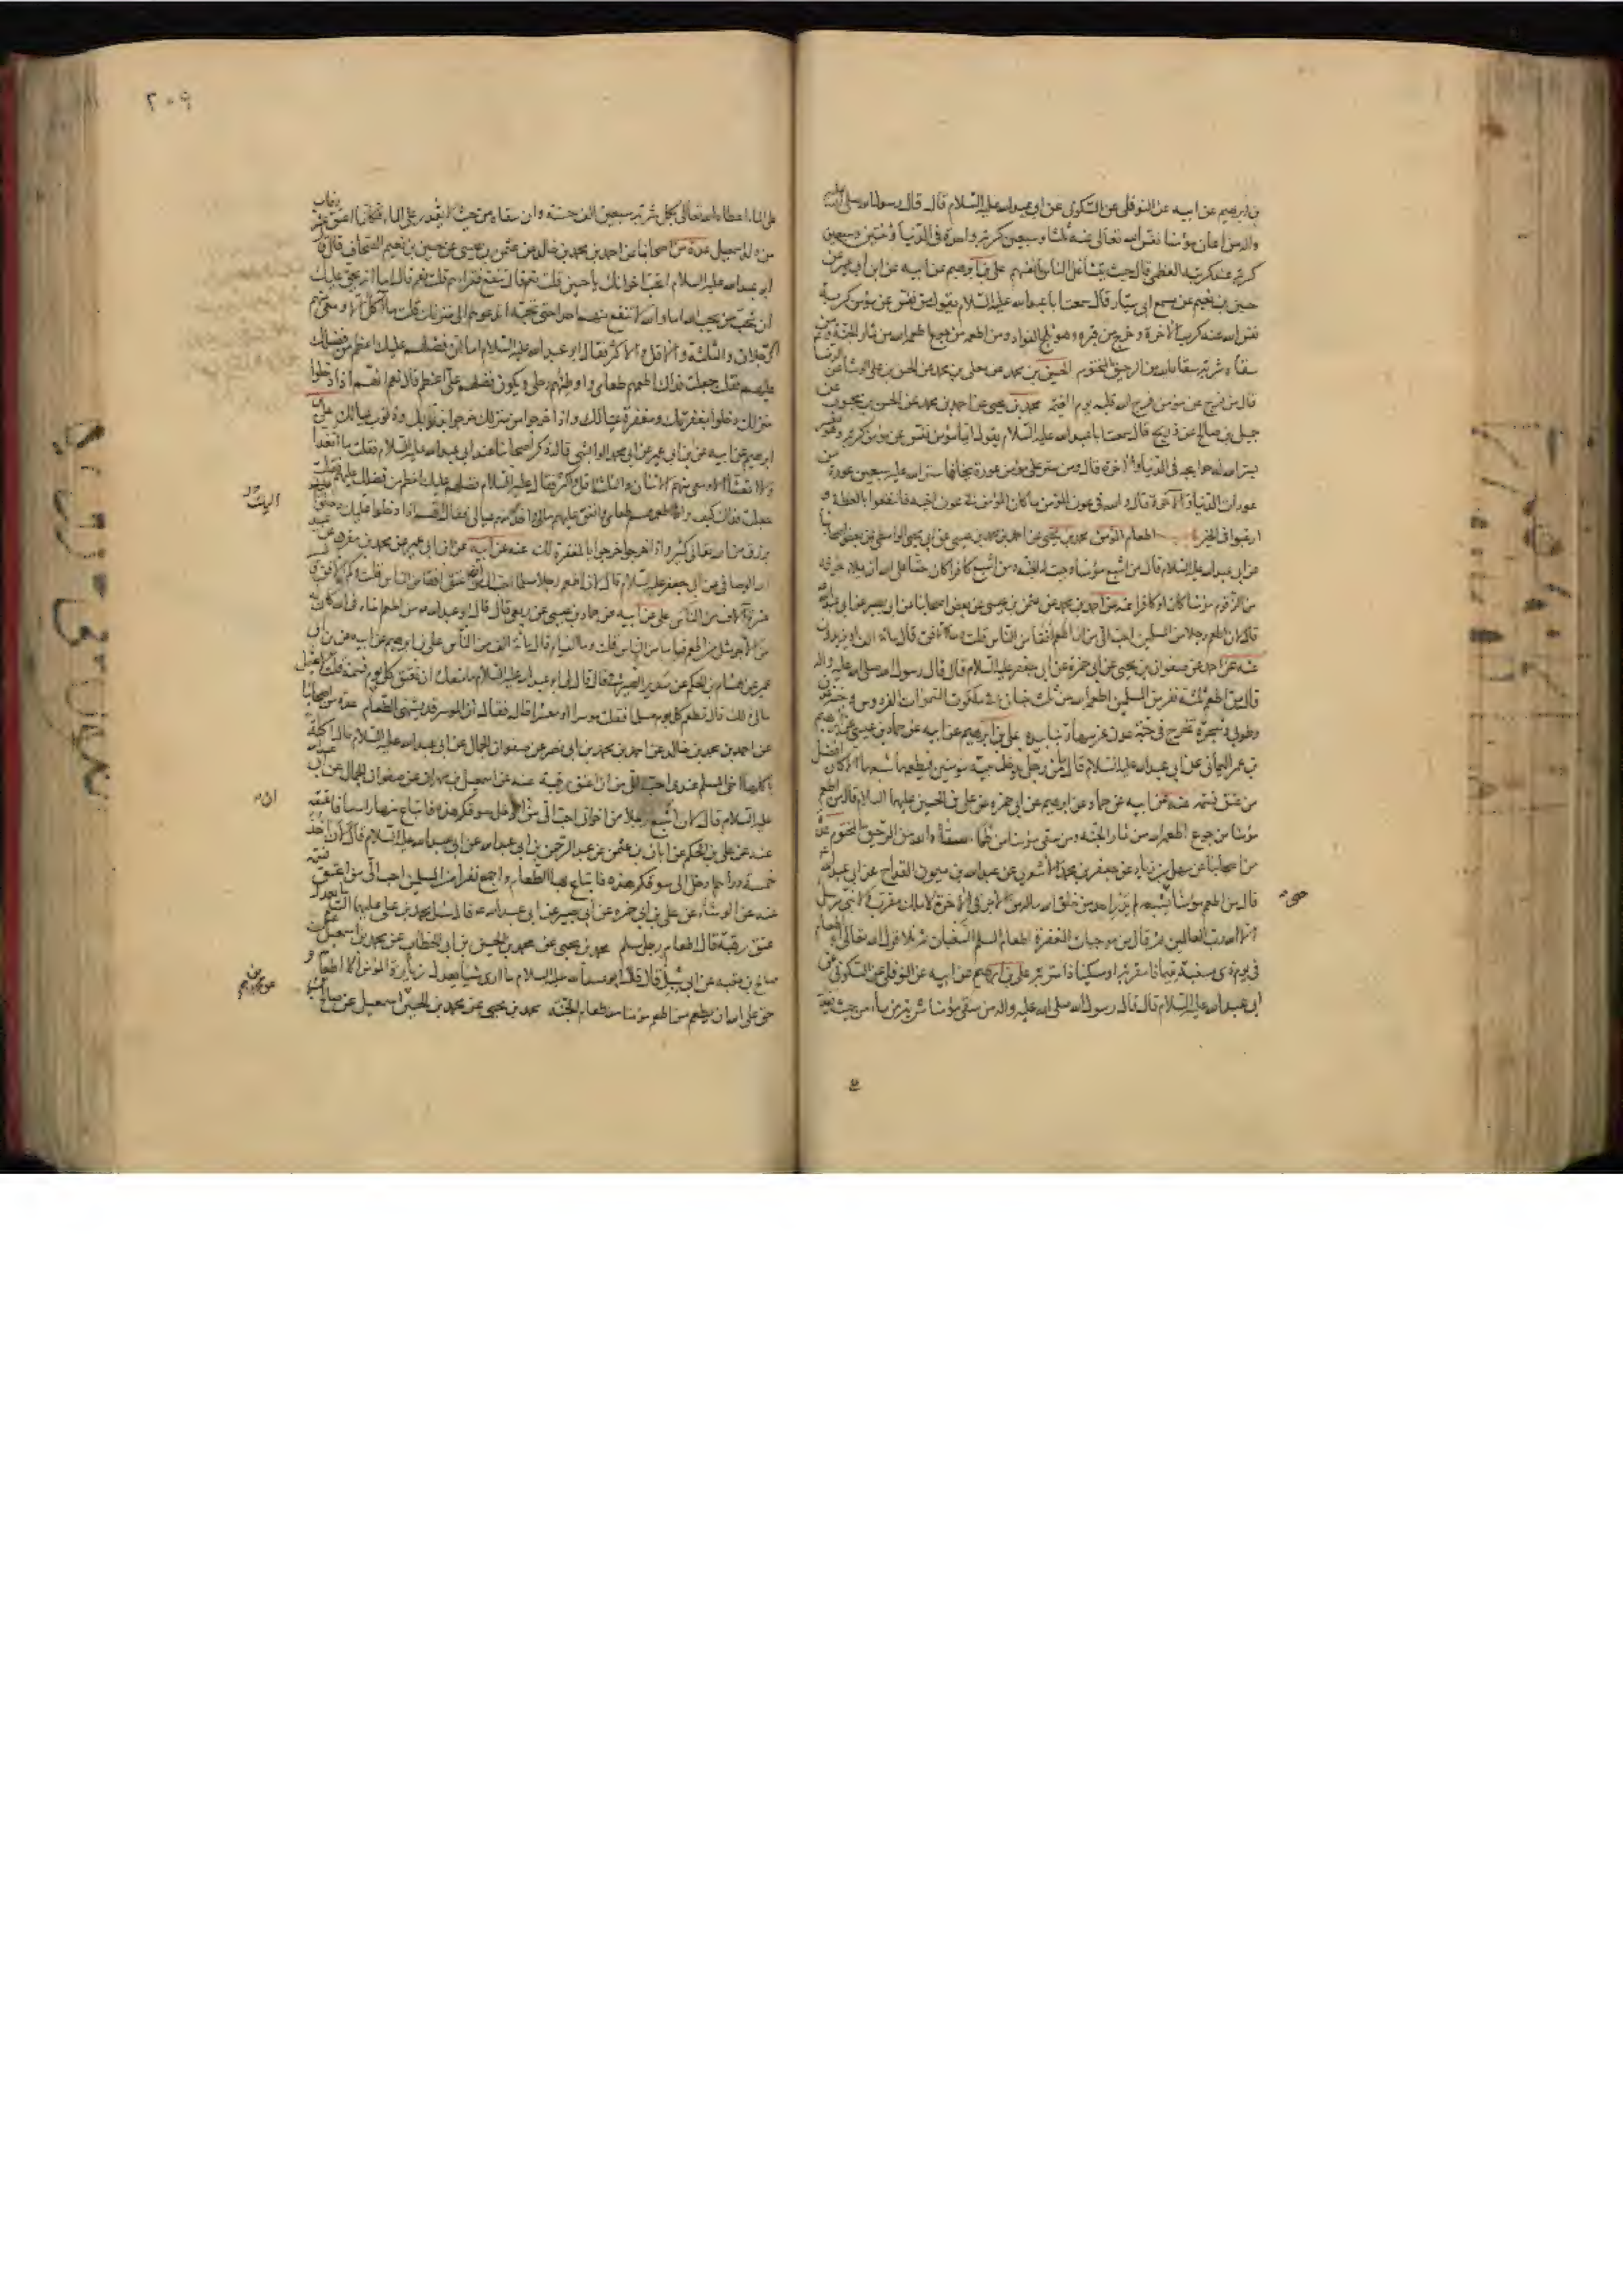 بن ابرهيم عن ابيه عن النوفلى عن السكونى عن ابى عبد الله عليه السلام قال قال رسول الله صلى الله عليه
واله من اعان مؤمنا نفس الله تعالى عنه ثلثا وسبعين كربة واحدة فى الدنيا وثنتين وسبعين
كربة عند كربه العظمى قال حيث يتشاغل الناس بانفسهم على بن ابرهيم عن ابيه عن ابن ابى عمير عن
حسين بن نعيم عن مسمع ابى سيار قال سمعت ابا عبد الله عليه السلام يقول من نفس عن مؤمن كربة
نفس الله عنه كرب الاخرة وخرج من قبره وهو ثلج الفواد ومن اطعمه من جوع اطعمه الله من ثمار الجنة ومن
سقاه شربة سقاه الله من الرحيق المختوم الحسين بن محمد عن معلى بن محمد عن الحسن بن على الوشا عن الرضا
قال من فرج عن مؤمن فرج الله قلبه يوم القيمة محمد بن يحيى عن احمد بن محمد عن الحسن بن محبوب عن
جميل بن صالح عن ذريح قال سمعت ابا عبد الله عليه السلام يقول ايما مؤمن نفس عن مؤمن كربة وهو معسر
يسر الله له حوايجه فى الدنيا والاخرة قال ومن ستر على مؤمن عورة يخافها ستر الله عليه سبعين عورة من
عورات الدنيا والاخرة قال والله فى عون المؤمن ما كان المؤمن فى عون اخيه فانتفعوا بالعظة و
ارغبوا فى الخير اطعام المؤمن محمد بن يحيى عن احمد بن محمد بن عيسى عن ابى يحيى الواسطى عن بعض اصحابنا
عن ابى عبد الله عليه السلام قال من اشبع مؤمنا وجبت له الجنة ومن اشبع كافرا كان حقا على الله ان يملأ جوفه
من الزقوم مؤمنا كان او كافرا عنه عن احمد بن محمد عن عثمن بن عيسى عن بعض اصحابنا عن ابى بصير عن ابى عبد الله
قال لان اطعم رجلا من المسلمين احب الى من ان اطعم افقا من الناس قلت وما الافق قال مائة الف او يزيدون
عنه عن احمد عن صفوان بن يحيى عن ابى حمزة عن ابى جعفر عليه السلام قال قال رسول الله صلى الله عليه واله
قال من اطعم ثلثة نفر من المسلمين اطعمه الله من ثلث جنان فى ملكوت السموات الفردوس وجنة عدن
وطوبى وشجرة تخرج فى جنة عدن غرسها ربنا بيده على بن ابرهيم عن ابيه عن حماد بن عيسى عن ابرهيم
بن عمر اليمانى عن ابى عبد الله عليه السلام قال ما من رجل يدخل بيته مؤمنين فيطعمهما شبعهما الا كان افضل
من عتق نسمة عنه عن ابيه عن حماد عن ابرهيم عن ابى حمزة عن على بن الحسين عليهما السلام قال من اطعم
مؤمنا من جوع اطعمه الله من ثمار الجنة ومن سقى مؤمنا من ظماء سقاه الله من الرحيق المختوم عدة
من اصحابنا عن سهل بن زياد عن جعفر بن محمد الاشعرى عن عبد الله بن ميمون القداح عن ابى عبد الله
قال من اطعم مؤمنا يشبعه لم يدر احد من خلق الله ما له من الاجر فى الاخرة لا ملك مقرب ولا نبى مرسل
الا الله رب العالمين ثم قال من موجبات المغفرة اطعام المسلم السغبان ثم تلا قول الله تعالى او اطعام
فى يوم ذى مسغبة يتيما ذا مقربة او مسكينا ذا متربة على بن ابرهيم عن ابيه عن النوفلى عن السكونى عن
ابى عبد الله عليه السلام قال قال رسول الله صلى الله عليه واله من سقى مؤمنا شربة من ماء من حيث يقدر
٢٠٩
على الماء اعطاه الله تعالى بكل شربة سبعين الف حسنة وان سقاه من حيث لا يقدر على الماء فكانما اعتق عشر رقاب
من ولد اسمعيل عدة من اصحابنا عن احمد بن محمد بن خالد عن عثمن بن عيسى عن حسين بن نعيم الصحاف قال قال
ابو عبد الله عليه السلام اتحب اخوانك يا حسين قلت نعم قال تنفع فقراءهم قلت نعم قال اما انه يحق عليك
ان تحب من يحب الله اما والله لا تنفع منهم احدا حتى تحبه اتدعوهم الى منزلك قلت ما اكل الا ومعى منهم
الرجلان والثلثة والاقل والاكثر فقال ابو عبد الله عليه السلام اما ان فضلهم عليك اعظم من فضلك
عليهم فقلت جعلت فداك اطعمهم طعامى واوطئهم رحلى ويكون فضلهم على اعظم قال نعم انهم اذا دخلوا
منزلك دخلوا بمغفرتك ومغفرة عيالك واذا خرجوا من منزلك خرجوا بذنوبك وذنوب عيالك على بن
ابرهيم عن ابيه عن ابن ابى عمير عن ابى محمد الوابشى قال ذكر اصحابنا عند ابى عبد الله عليه السلام فقلت ما اتغدا
ولا اتعشا الا ومعى منهم الاثنان والثلثة واقل واكثر فقال عليه السلام فضلهم عليك اعظم من فضلك عليهم فقلت
جعلت فداك كيف وانا اطعمهم طعامى وانفق عليهم مالى واخدمهم عيالى فقال انهم اذا دخلوا عليك دخلوا
برزق من الله تعالى كثير واذا خرجوا خرجوا بالمغفرة لك عنه عن ابيه عن ابن ابى عمير عن محمد بن مقرن عن عبيد
الله الوصافى عن ابى جعفر عليه السلام قال لان اطعم رجلا مسلما احب الى من ان اعتق افقا من الناس قلت وكم الافق قال
عشرة آلاف من الناس على عن ابيه عن حماد بن عيسى عن ربعى قال قال ابو عبد الله من اطعم اخاه فى الله كان له
من الاجر مثل من اطعم فياما من الناس قلت وما الفيام قال مائة الف من الناس على بن ابرهيم عن ابيه عن ابن ابى
عمير عن هشام بن الحكم عن سدير الصيرفى قال قال لى ابو عبد الله عليه السلام ما منعك ان تعتق كل يوم نسمة قلت لا يحتمل
مالى ذلك قال تطعم كل يوم مسلما فقلت موسرا او معسرا قال فقال ان الموسر قد يشتهى الطعام عدة من اصحابنا
عن احمد بن محمد بن خالد عن احمد بن محمد بن ابى نصر عن صفوان الجمال عن ابى عبد الله عليه السلام قال اكلة
ياكلها اخى المسلم عندى احب الى من ان اعتق رقبة عنه عن اسمعيل بن مهران عن صفوان الجمال عن ابى عبد الله
عليه السلام قال لان اشبع رجلا من اخوانى احب الى من ادخل سوقكم هذه فابتاع منها راسا فاعتقه
عنه عن على بن الحكم عن ابان بن عثمن عن عبد الرحمن بن ابى عبد الله عن ابى عبد الله عليه السلام قال لان اخذ
خمسة دراهم ادخل الى سوقكم هذه فابتاع بها الطعام واجمع نفرا من المسلمين احب الى من ان اعتق نسمة
عنه عن الوشاء عن على بن ابى حمزة عن ابى بصير عن ابى عبد الله قال سئل محمد بن على عليهما السلام ما يعدل
عتق رقبة قال اطعام رجل مسلم محمد بن يحيى عن محمد بن الحسين بن ابى الخطاب عن محمد بن اسمعيل عن
صالح بن عقبة عن ابى شبل قال قال ابو عبد الله عليه السلام ما ارى شيئا يعدل زيارة المؤمن الا اطعامه و
حق على الله ان يطعم من اطعم مؤمنا من طعام الجنة محمد بن يحيى عن محمد بن الحسين عن محمد بن اسمعيل عن صالح بن عقبة